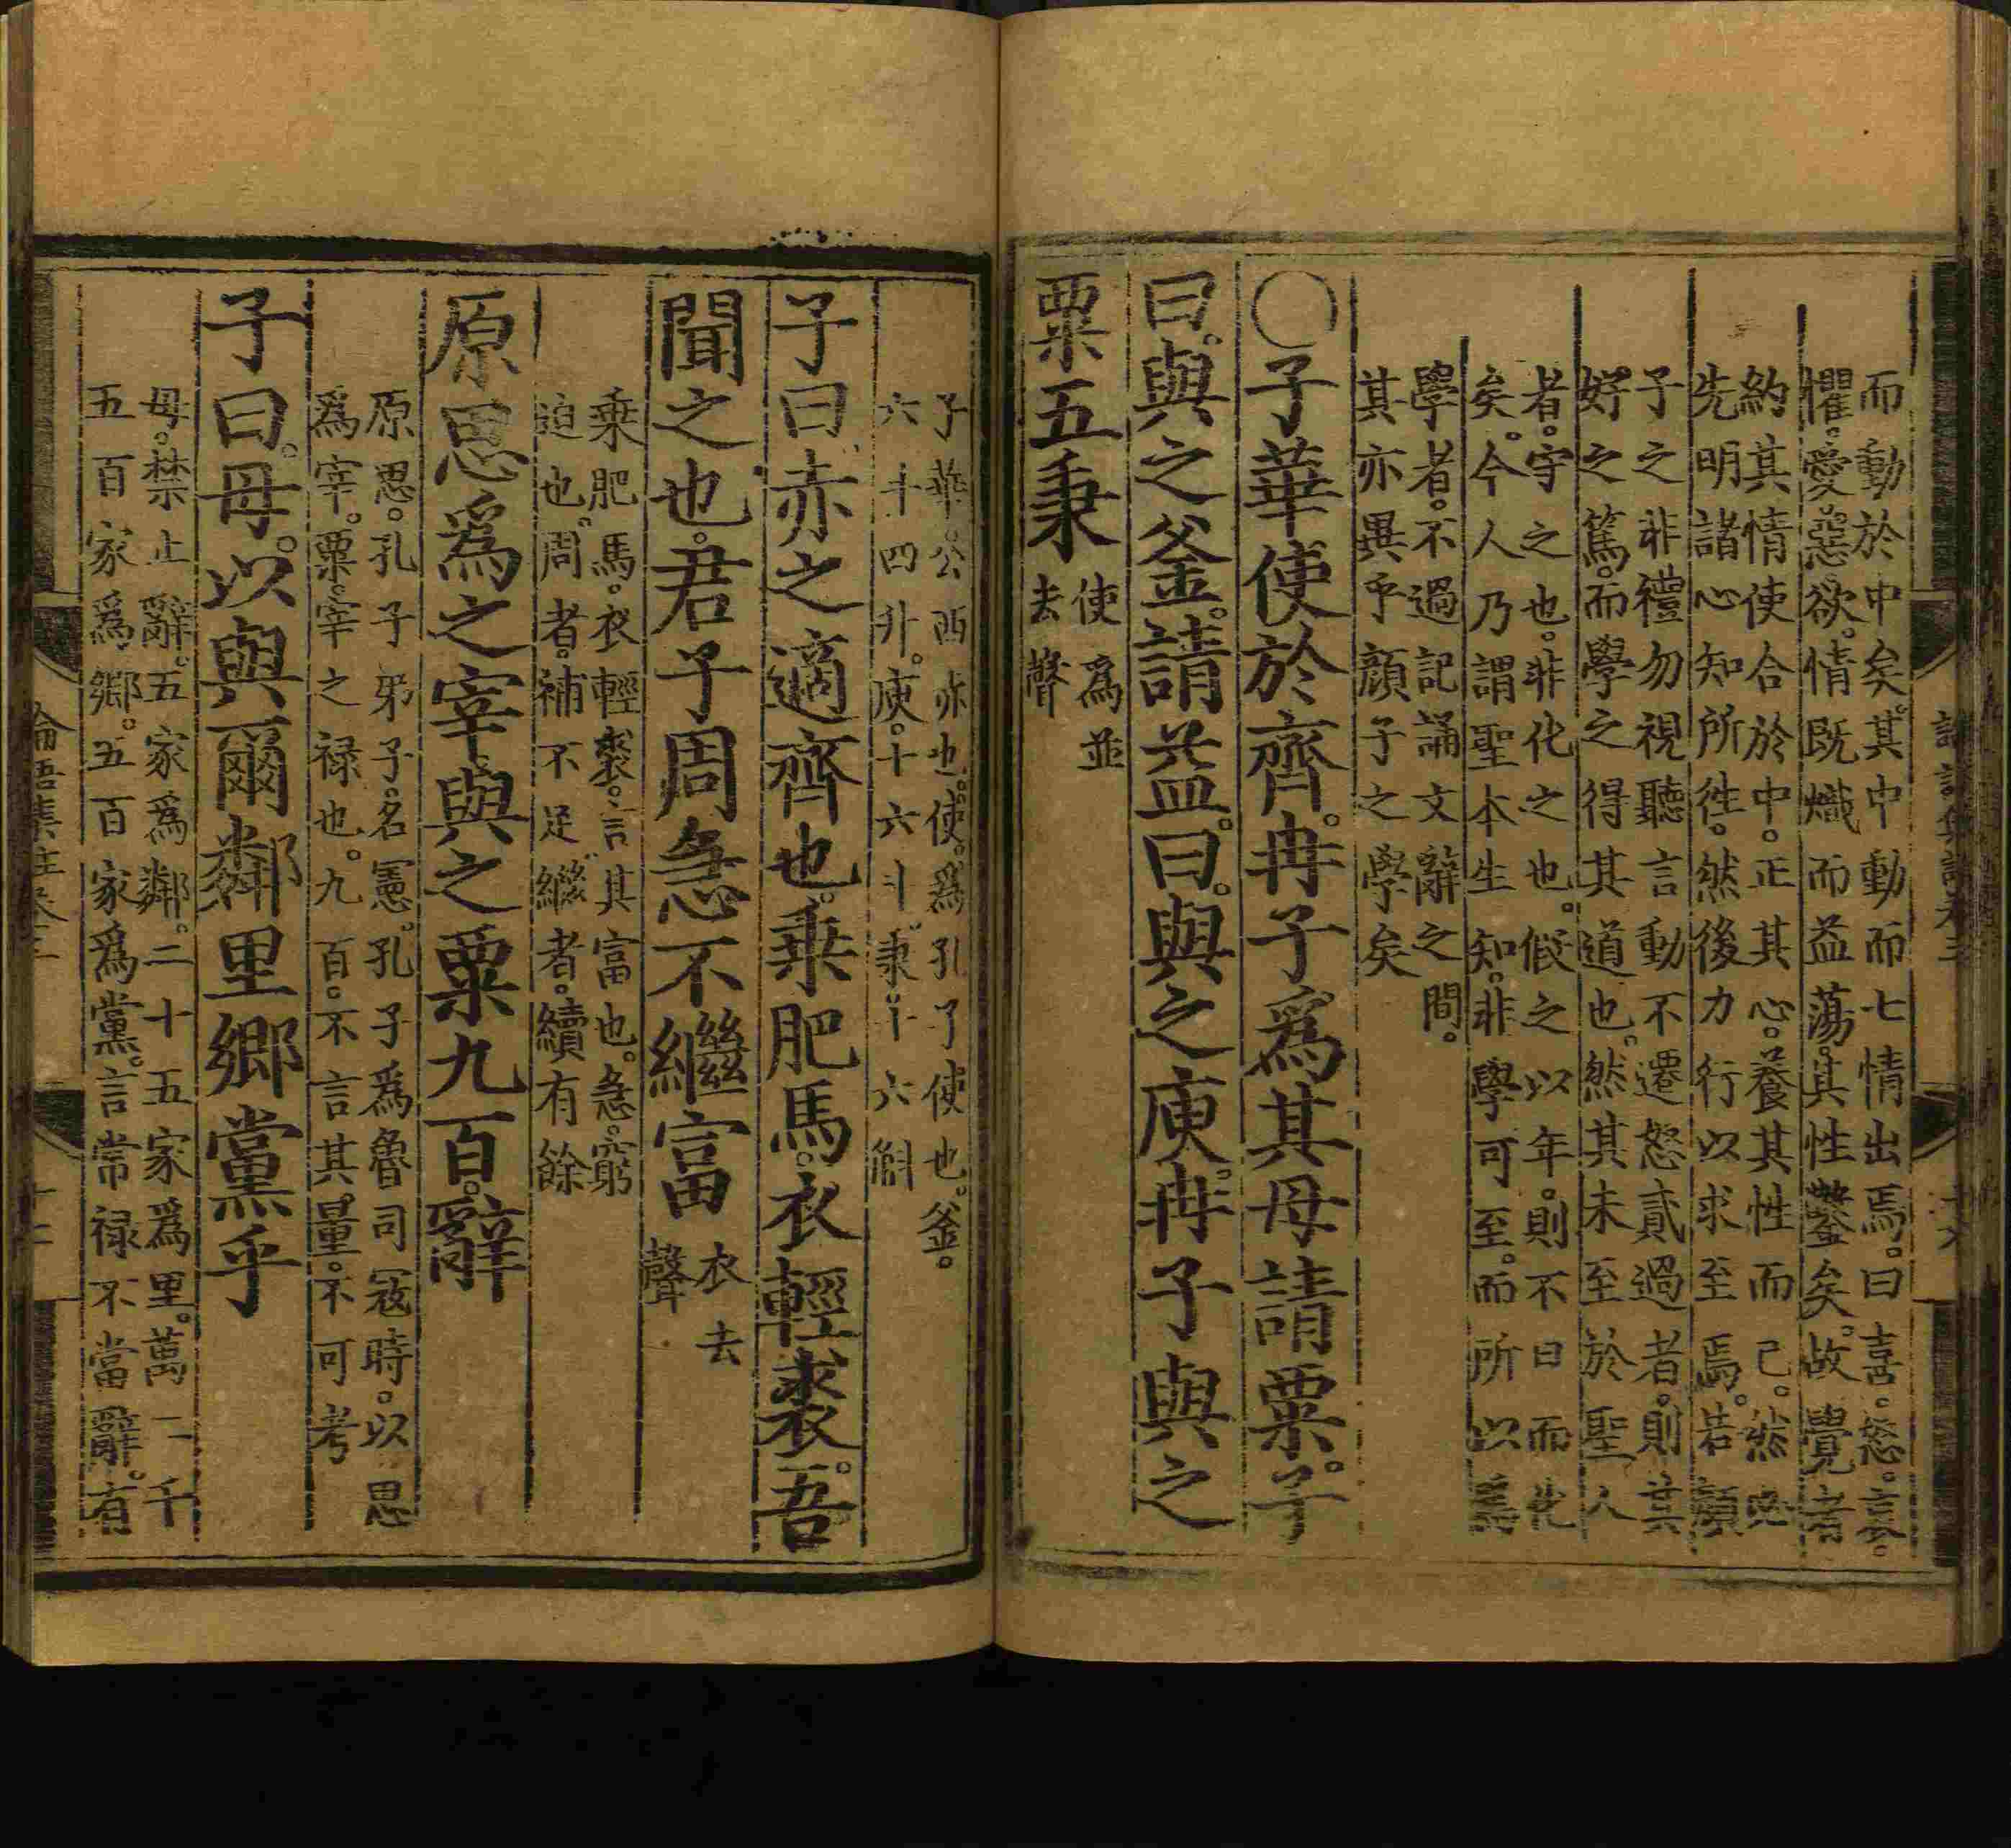 而動於中矣。其中動而七情出焉。曰喜。怒。哀。
懼。愛。惡。欲。情既熾而益蕩。其性鑿矣。故覺者
約其情使合於中。正其心。養其性而已。然必
先明諸心知所徃。然後力行以求至焉。若顏
子之非禮勿視聽言動不遷怒貳過者。則其
好之篤。而學之得其道也。然其未至於聖人
者。守之也。非化之也。假之以年。則不日而化
矣。今人乃謂聖本生知。非學可至。而所以爲
學者。不過記誦文辭之間。
其亦異乎顏子之學矣
○子華使於齊。冉子爲其母請粟。子
曰。與之釜。請益。曰。與之庾。冉子與之
粟五秉
使爲並
去聲
子華。公西赤也。使。爲孔子使也。釜。
六斗四升。庾。十六斗。秉。十六斛
子曰。赤之適齊也。乘肥馬。衣輕裘。吾
聞之也。君子周急不繼富
衣去
聲
乘肥馬。衣輕裘。言其富也。急。窮
迫也。周者。補不足。繼者。續有餘
原思爲之宰。與之粟九百。辭
原思。孔子弟子。名憲。孔子爲魯司寇時。以思
爲宰。粟。宰之禄也。九百。不言其量。不可考
子曰。毋。以與爾鄰里鄉黨乎
毋。禁止辭。五家爲鄰。二十五家爲里。萬二千
五百家爲鄉。五百家爲黨。言常禄不當辭。有
論語集註卷三